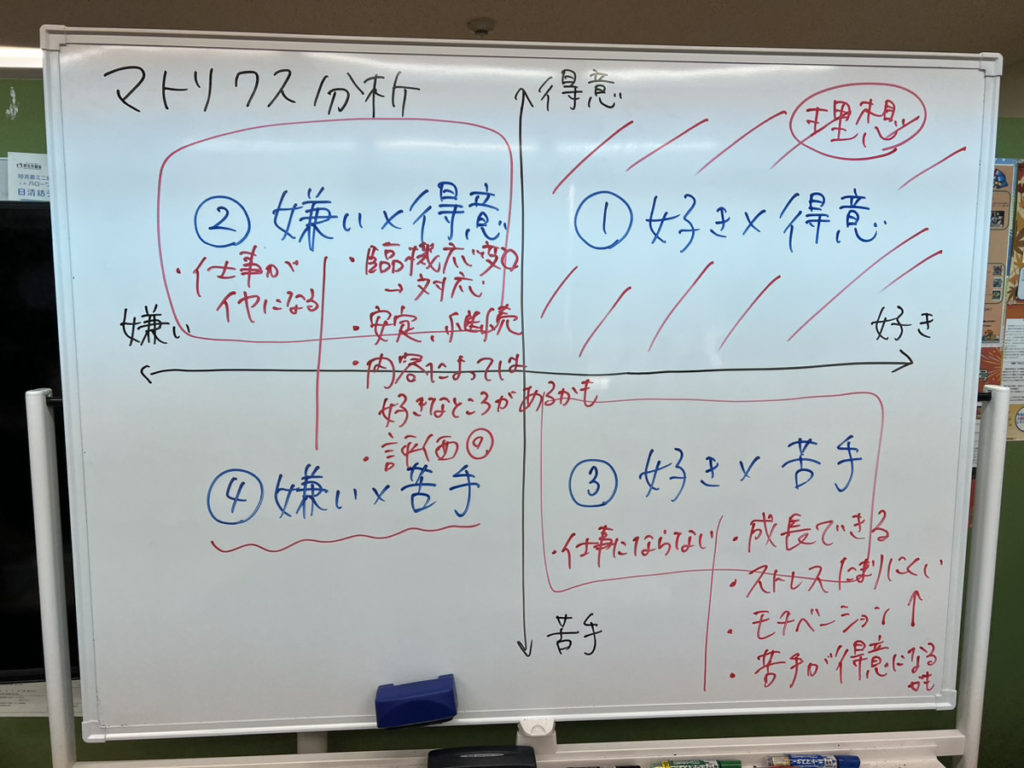 マトリクス分析
得意
理想
② 嫌い×得意
① 好き×得意
・仕事が
イヤになる
・臨機応変
→対応
・安定、継続
・内容によっては
好きなところがあるかも
・評価
嫌い
好き
④ 嫌い×苦手
③ 好き×苦手
・仕事にならない
・成長できる
・ストレスたまりにくい
・モチベーション↑
・苦手が得意になる
かも
苦手